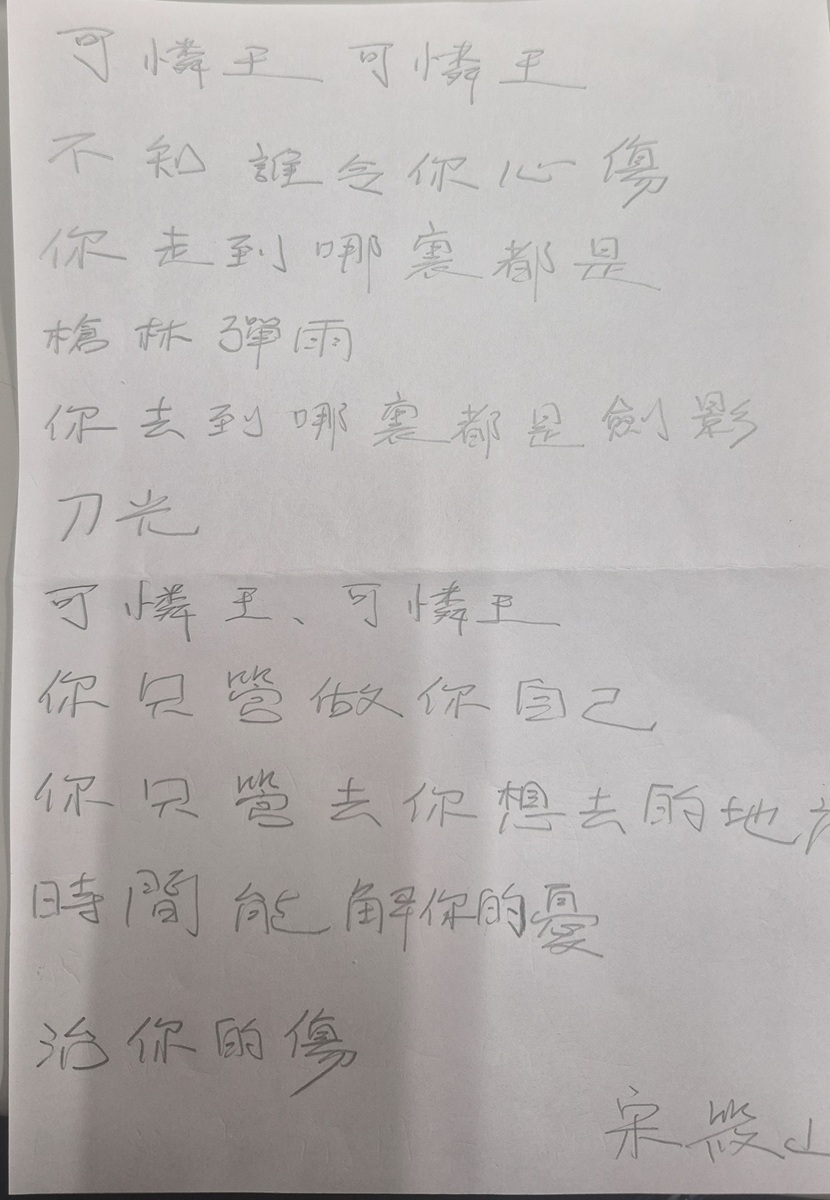 可憐王 可憐王
不知誰令你心傷
你走到哪裏都是
槍林彈雨
你去到哪裏都是劍影
刀光
可憐王、可憐王
你只管做你自己
你只管去你想去的地
時間能解你的憂
治你的傷
宋筱